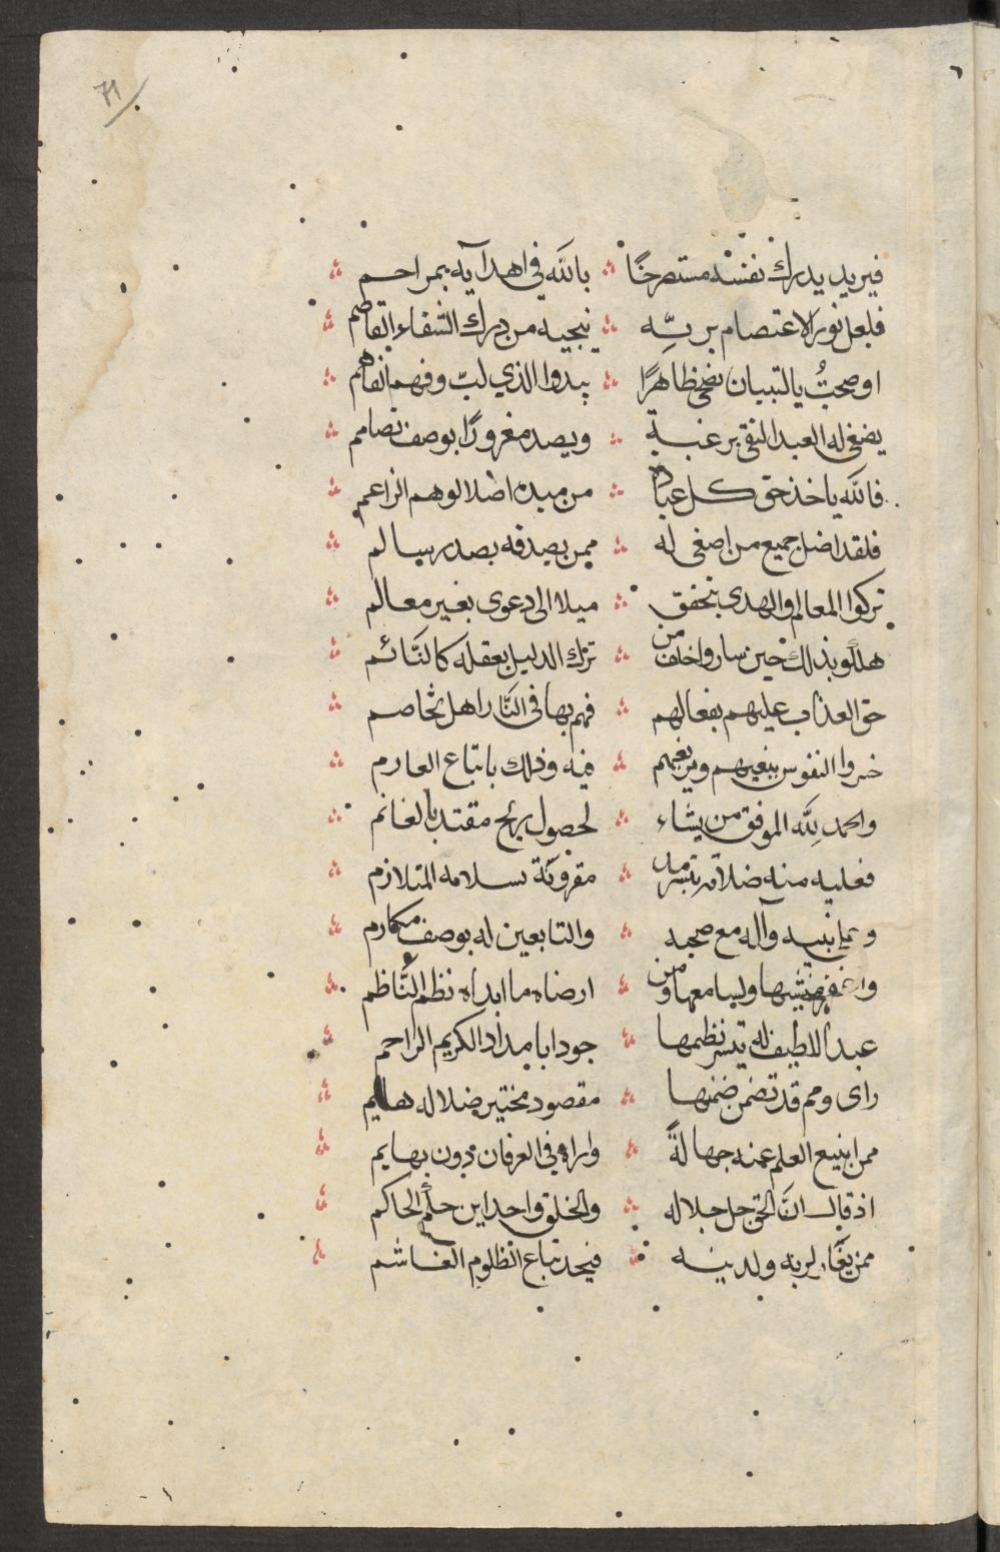 71
فيريد يدرك نفسه مستصرخًا بالله في اهدايه بمراحم
فلعل نور الاعتصام بربّه ينجيه من درك الشقاء القاصم
اوضحتُ بالتبيان نصحي ظاهرًا يبدوا الذي لبّ وفهم
يصغي له العبد التقي برغبة ويصد مغرورًا بوصف تصامم
فالله ياخذ حق كل عباده من اضلالوهم الزاعم
فلقد اضل جميع من اصغى له ممن يصدقه بصدر سالم
تركوا المعالم والهدى بتحقق ميلا الى دعوى بغير معالم
هلكو بذلك حين ساروا خلف من ترك الدليل بعقله كالنَّائم
حق العذاب عليهم بفعالهم فهم بها في النَّار اهل تخاصم
خسروا النفوس ببغيهم وبزيغهم فيه وذلك باتباع العارم
والحمد لله الموفق من يشاء لحصول ربح مقتد بالغانم
فعليه منه صلاة مقرونة بسلامه المتلازم
وعلى نبيه وآله مع صحبه والتابعين له بوصف مكارم
واغفر لمنشيها وليسامعها ومن ارضاه ما ابداه نظم النَّاظم
عبد اللطيف له تيسر نظمها جودا بامداد الكريم الراحم
راى قد تضمن ضمنها مقصود ضلاله هايم
ممن ابيع العلم عنه جهالةً واراه في العرفان دون بهايم
اذ قال انَّ الحق جل جلاله والخلق واحد اين حلم الحاكم
ممن يغار لربه ولدينه الظلوم الغاشم